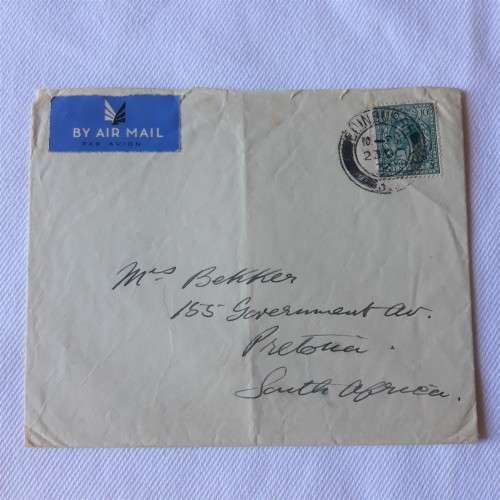 BY AIR MAIL
PAR AVION
10
23
Mrs Bekker
155 Government Av.
Pretoria.
South Africa.